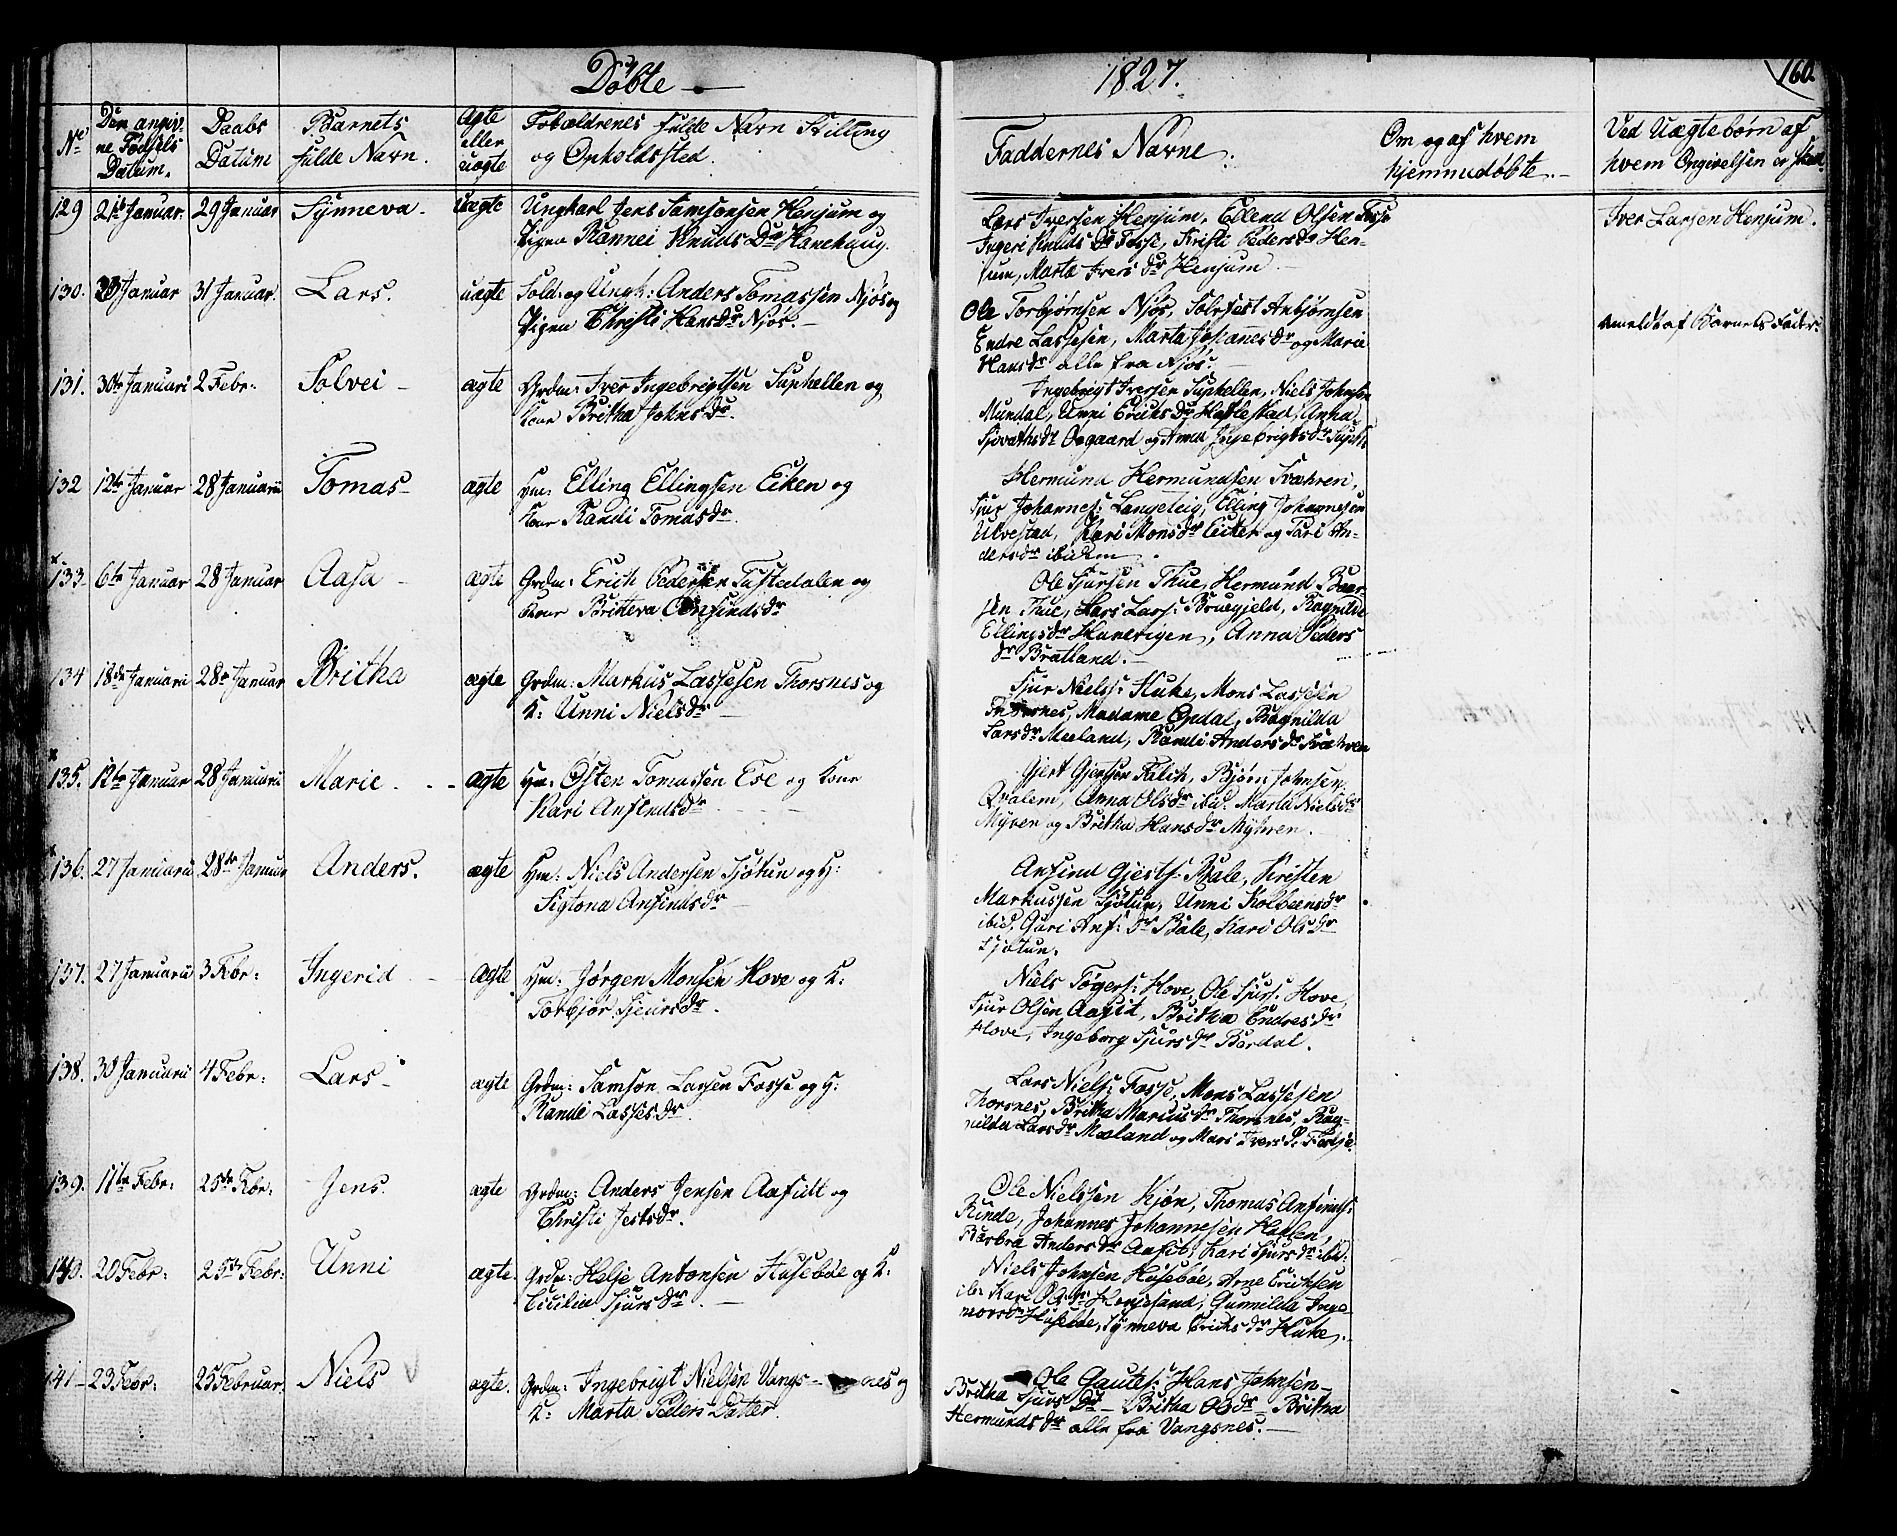 Døbte
1827.
160.
No
Den angiv-
ne Fødsels
Datum.
Daabs
Datum
Barnets
fulde Navn.
ægte
eller
uægte
Forældrenes fulde Navn Stilling
og Opholdssted.
Faddernes Navne
Om og af hvem
hjemmedøbte.
Ved Uægtebørn af
hvem Ongivelsen er skeed
129 21de Januar. 29 Januar Synneva uægte Ungkarl Jens Samsonsen Henjum og
Pigen Rannei Knuds Dr Hanehaug.
Lars Iversen Henjum, Erlend Olsen Fosse
Ingeri Knuds Dr Fosse, Kristi Peders Dr Hen-
jum, Marta Ivers dr Henjum
Iver Larsen Henjum.
130. 23 Januar 31 Januar. Lars. uægte Sold: og Ungk: Anders Tomassen Njøs og
Pigen Christi Hans Dr Njøs.
Ole Torbjørnsen Njøs, Solvfest Anbjørnsen
Endre Lassesen, Marta Johannes dr og Mari
Hans dr alle fra Njøs.
Anmeldt af Barnets Fader
131. 30te Januari 2 Febr: Solvei ægte Grdm: Iver Ingebrigtsen Suphellen og
Kone Britha Johns Dr.
Ingebrigt Iversen Suphellen, Niels Johnsen
Mundal, Unni Erichs Dr Haflestad, Anna
Sjovaths dr Oegaard og Anna Ingebrigts dr Suph:
132 12te Januar 28 Januarii Tomas ægte Hm: Elling Ellingsen Eiken og
Kone Randi Tomas dr.
Hermund Hermundsen Svæhren,
Sjur Johannes: Langeteig, Elling Johannesen
Ulvestad, Kari Mons dr Eiken og Kari An-
ders dr ibidem.
133. 6te Januar 28 Januar Aasa ægte Grdm: Erich Pedersen Tustedalen og
Kone Britteva Onfinds dr
Ole Sjursen Thue, Hermund Baar-
sen Thue, Lars Lars: Bruegjeld, Ragnilda
Ellings dr Hanevigen, Anna Peders
dr Bratland.
134 18de Januarii 28de Januar Britha ægte Grdm: Markus Lassesen Thorsnes og
K: Unni Niels dr
Sjur Niels: Huke, Mons Lassesen
Thorsnes, Madame Opdal, Ragnilda
Lars dr Meeland, Randi Anders dr Svæhren
135. 12te Januar 28 Januarii Marie ægte Hm: Østen Tomassen Ese og Kone
Kari Anfinds dr
Gjert Gjertsen Falch, Bjørn Johnsen
Qvalem, Anna Ols dr ibid: Marta Niels dr
Myren og Britha Hans dr Myhren.
136. 27 Januarii 28de Januar Anders. ægte Hm: Niels Andersen Sjøtun og H:
Sigtona Anfinds dr
Anfind Gjerts: Bale, Kristen
Markussen Sjøtun, Unni Kolbeens dr
ibid, Guri Anf: dr Bale, Kari Ols dr
Sjøtun.
137. 27 Januarii 3 Febr: Ingerid ægte Hm: Jørgen Monsen Hove og K:
Torbjør Sjeurs dr.
Niels Tøgers: Hove, Ole Sjurs: Hove,
Sjur Olsen Aafit, Britha Endres dr
Hove, Ingeborg Sjurs dr Børdal.
138. 30 Januarii 4 Febr: Lars ægte Grdm: Samson Larsen Fosse og H:
Randi Lasses dr.
Lars Niels: Fosse, Mons Lassesen
Thorsnes, Britha Marcus dr Thorsnes, Rag-
nilda Lars dr Meeland og Mari Ivers D. Fosse.
139. 11te Febr: 25de Febr: Jens. ægte Grdm: Anders Jensen Aafitt og
Christi Jests dr.
Ole Nielssen Kjøn, Thomas Anfinds:
Rinde, Johannes Johannesen Hanlen,
Barbra Anders dr Aafit, Kari Sjurs dr ibid:
140. 20 Febr: 25de Febr: Unni ægte. Grdm: Helje Antonsen Husebøe og K:
Cicilia Sjurs dr.
Niels Johnsen Husebøe, Arne Erichsen
ib: Kari Henjesand, Gunnilda Inge-
mors dr Husebøe, Synneva Erichs dr Huke.
141 23 Febr: 25 Februar. Niels ægte. Grdm: Ingebrigt Nielsen Vangs-nes og
K: Marta Peders Datter.
Ole Gautes: Hans Johnsen
Britha Sjurs Dr - Britha Ols dr - Britha
Hermunds dr alle fra Vangsnes.